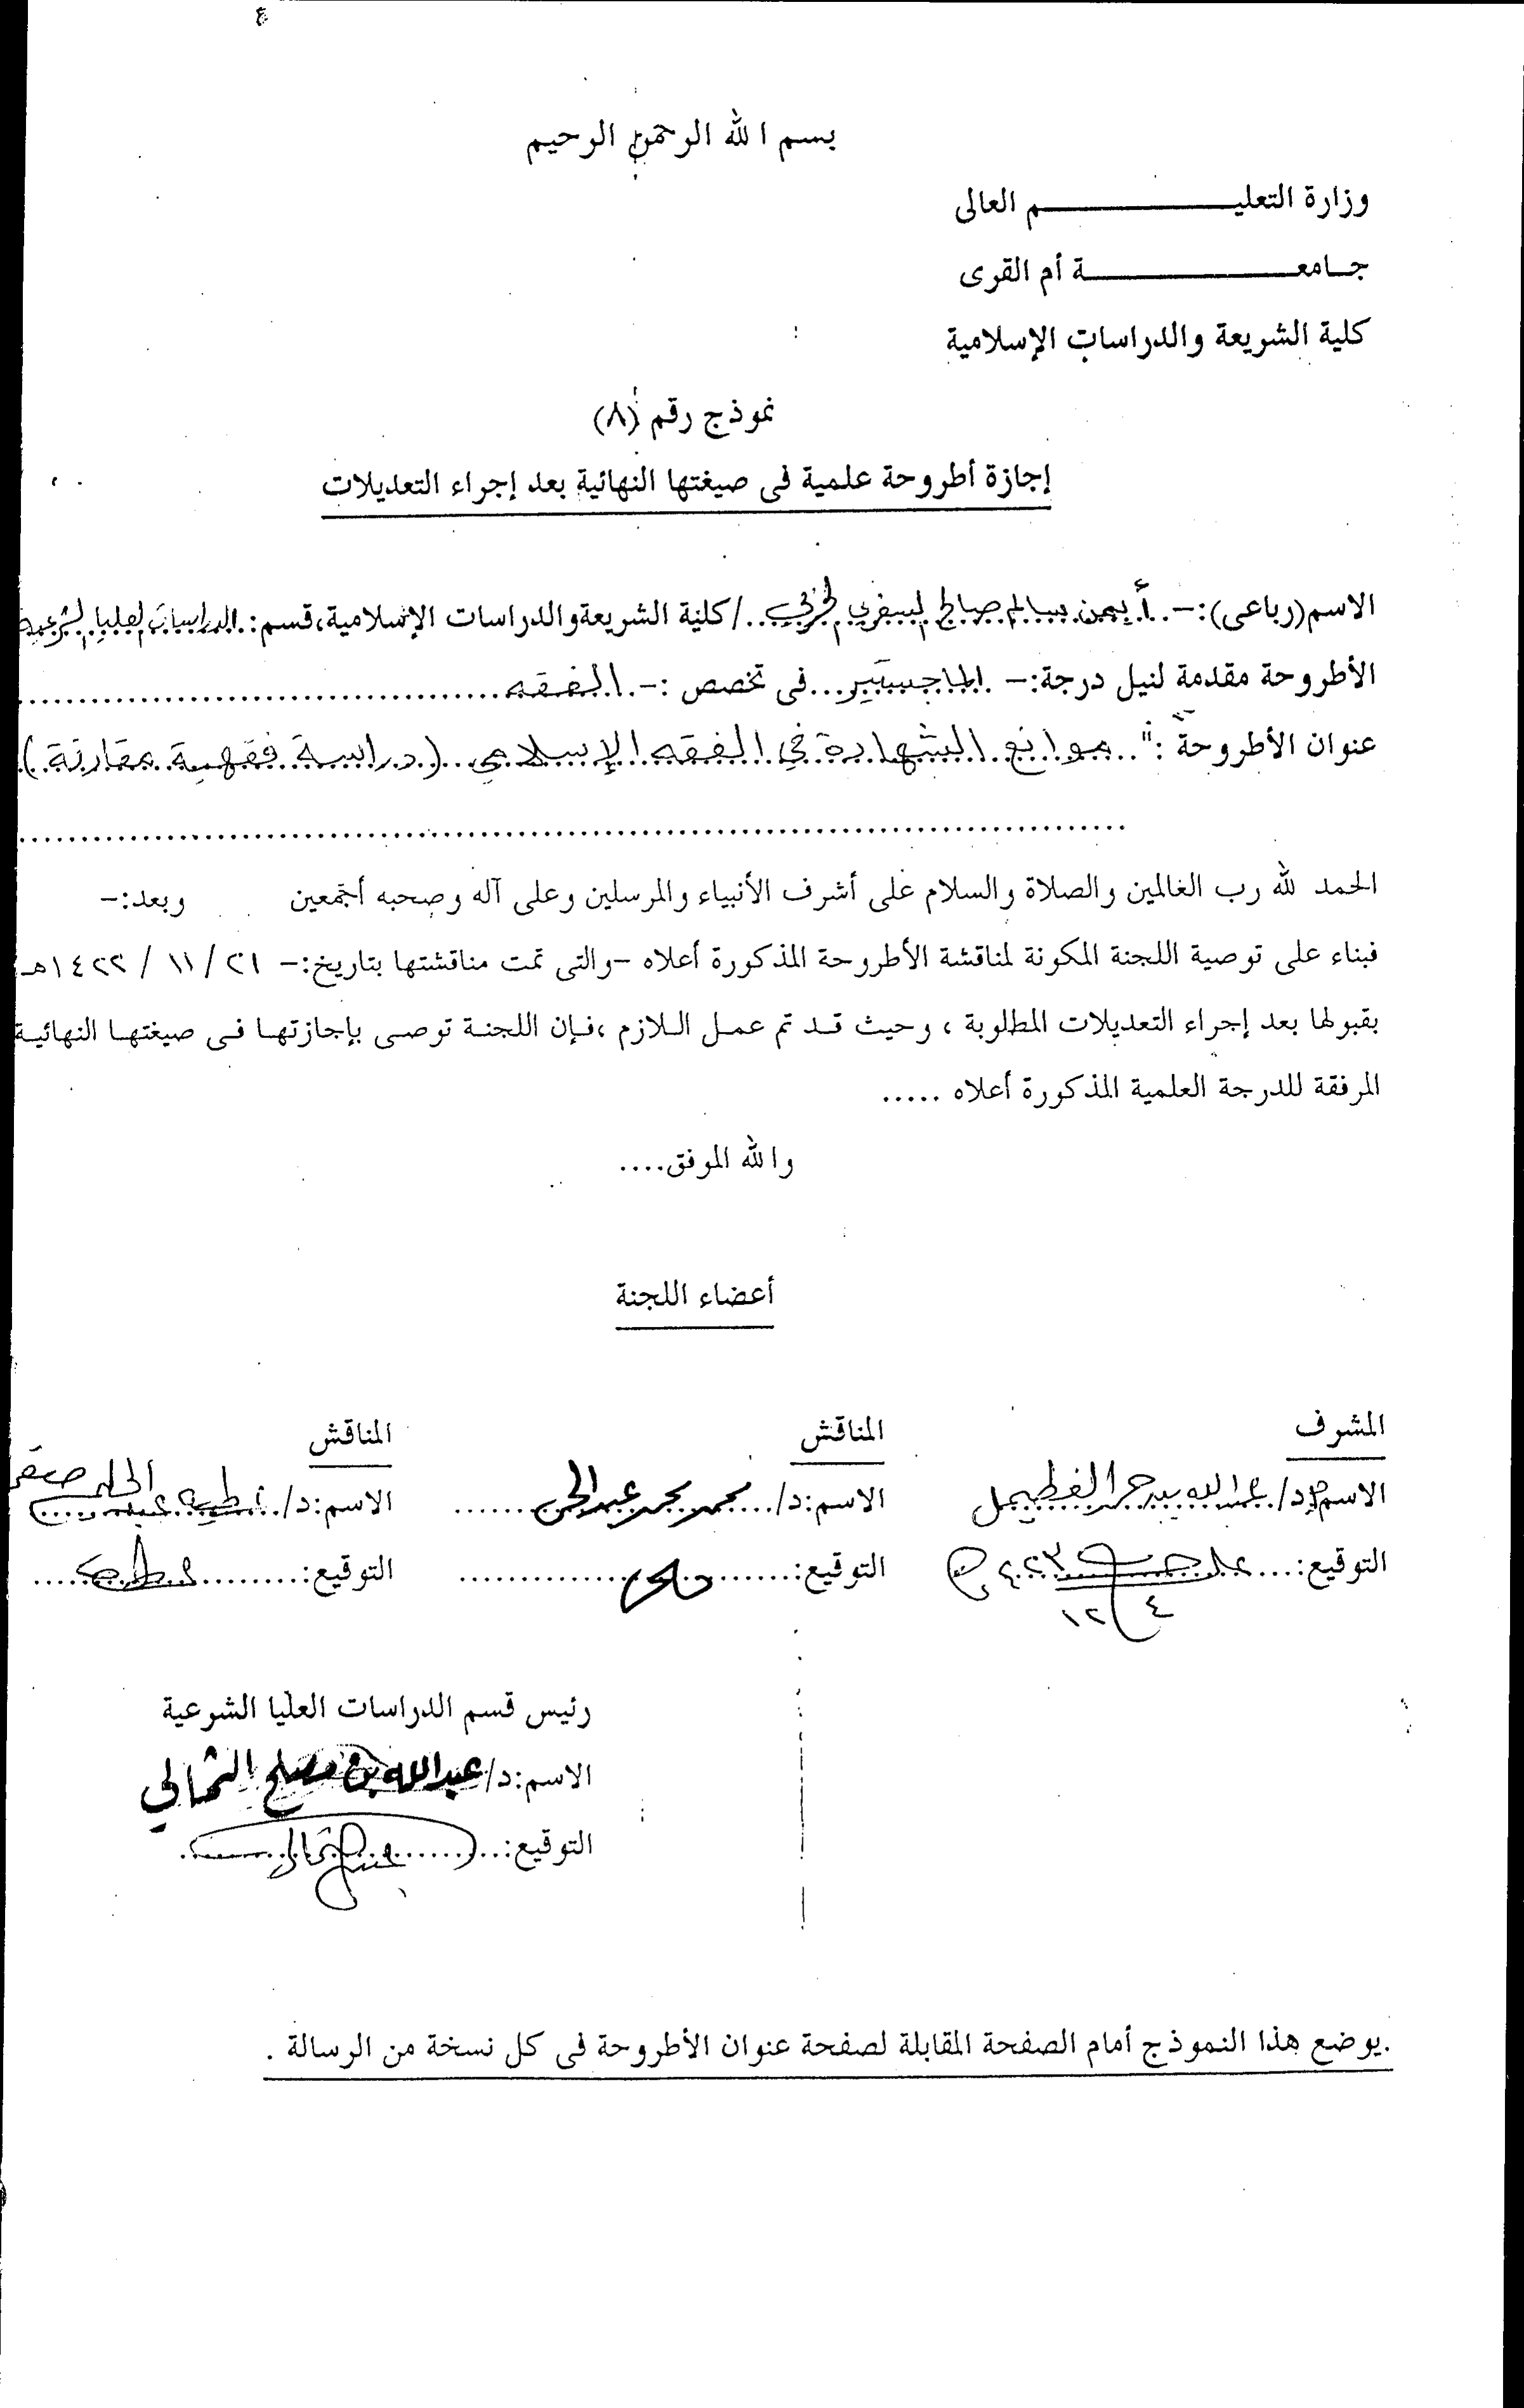 بسم الله الرحمن الرحيم
وزارة التعليم العالى
جامعة أم القرى
كلية الشريعة والدراسات الإسلامية
نموذج رقم (٨)
إجازة أطروحة علمية فى صيغتها النهائية بعد إجراء التعديلات
الاسم(رباعى):- أيمن سالم صالح السفري الحربي / كلية الشريعة والدراسات الإسلامية، قسم: الدراسات العليا الشرعية
الأطروحة مقدمة لنيل درجة:- الماجستير فى تخصص :- الفقه
عنوان الأطروحة :" موانع الشهادة في الفقه الإسلامي (دراسة فقهية مقارنة)
الحمد لله رب العالمين والصلاة والسلام على أشرف الأنبياء والمرسلين وعلى آله وصحبه أجمعين وبعد:-
فبناء على توصية اللجنة المكونة لمناقشة الأطروحة المذكورة أعلاه -والتى تمت مناقشتها بتاريخ:- ٢١ / ١١ / ١٤٢٢هـ
بقبولها بعد إجراء التعديلات المطلوبة ، وحيث قد تم عمل اللازم ،فإن اللجنة توصى بإجازتها فى صيغتها النهائية
المرفقة للدرجة العلمية المذكورة أعلاه .....
والله الموفق....
أعضاء اللجنة
المشرف المناقش المناقش
الاسم: د/ عبدالله بن حمد الغطيمل الاسم:د/ محمد محمد عبدالحي الاسم:د/ عطية عبدالحليم صقر
التوقيع: التوقيع: التوقيع:
٤ / ١٢
رئيس قسم الدراسات العليا الشرعية
الاسم:د/ عبدالله بن مصلح الثمالي
التوقيع:
يوضع هذا النموذج أمام الصفحة المقابلة لصفحة عنوان الأطروحة فى كل نسخة من الرسالة .